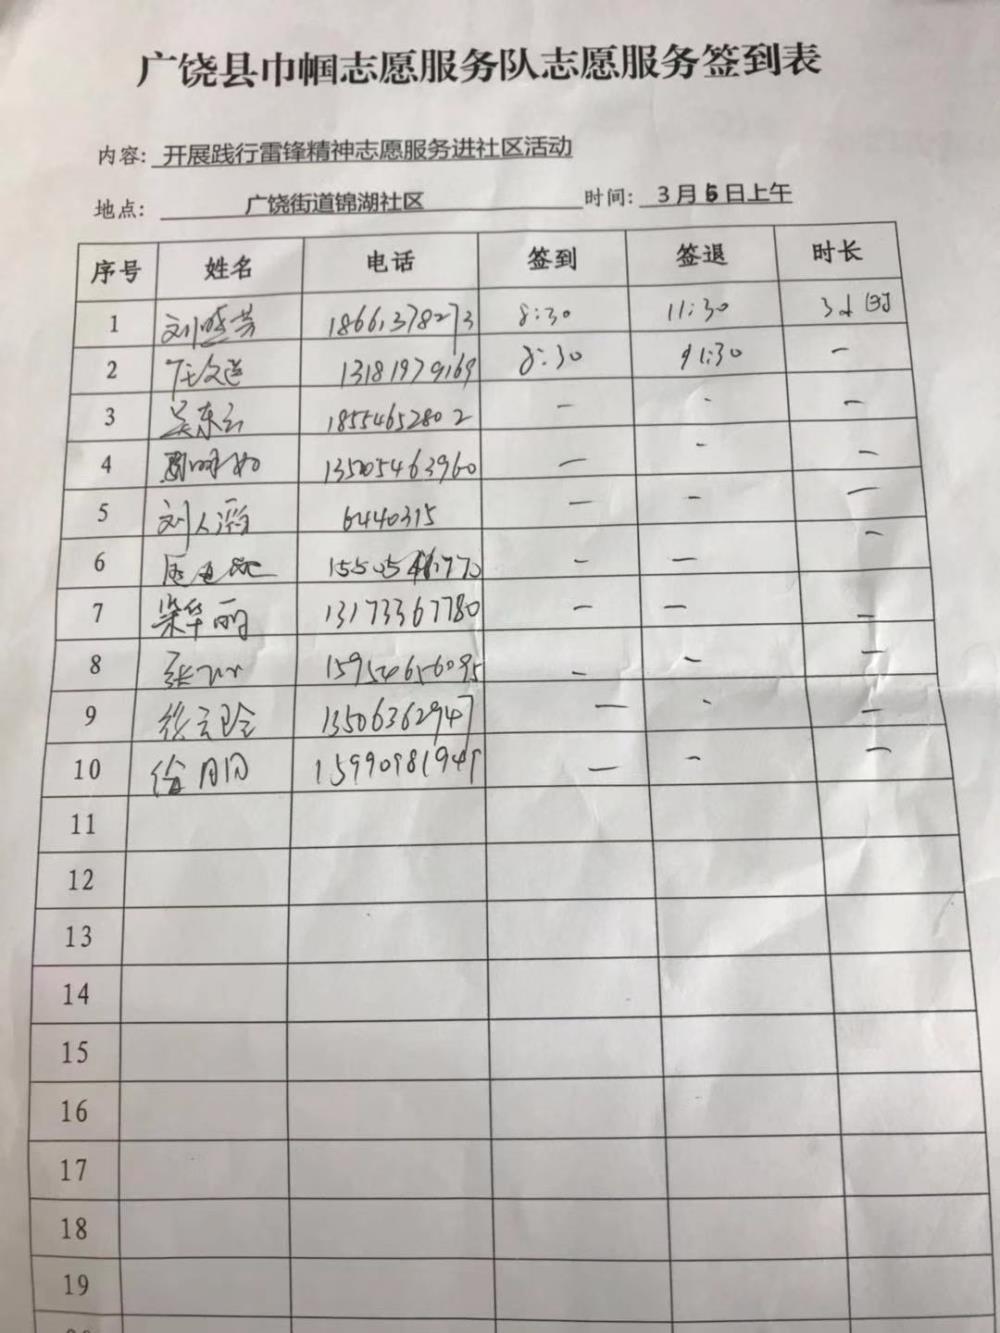 广饶县巾帼志愿服务队志愿服务签到表
内容: 开展践行雷锋精神志愿服务进社区活动
地点: 广饶街道锦湖社区 时间: 3月5日上午
序号 姓名 电话 签到 签退 时长
1 刘 18661378273 8:30 11:30 3小时
2 13181979169 8:30 11:30 —
3 吴东云 18554652802 — - —
4 13505463960 — - —
5 刘人 6440315 — — —
6 — — —
7 梁华丽 13173367780 — — —
8 张 15954656095 — — —
9 徐云玲 13506362947 — - —
10 15990981949 — - —
11
12
13
14
15
16
17
18
19